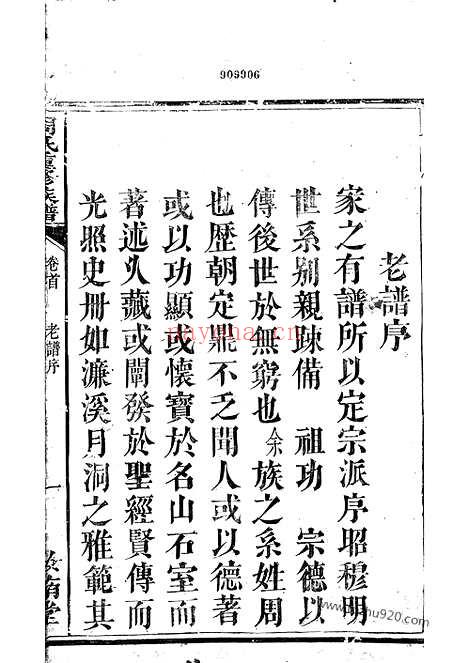 909906
老譜序
家之有譜所以定宗派序昭穆明
世系别親踈備 祖功 宗德以
傳後世於無窮也余族之系姓周
也歴朝定鼎不乏聞人或以德著
或以功顯或懷寶於名山石室而
著述乆藏或闡發於聖經賢傳而
光照史册如濓溪月洞之雅範其
氏 修族譜
卷首
老譜序
一
堂